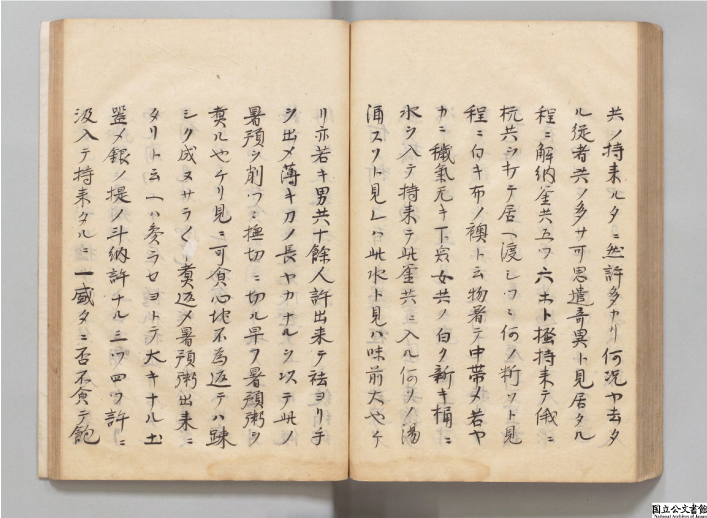 共ノ持来ルタニ然許多カリ何況ヤ去タ
ル従者共ノ多サ可思遣奇異ト見居タル
程ニ解納釜共五ツ六ツ𡈽ト掻持来テ俄ニ
杭共ヲ打テ居ヘ渡シツニ何ノ断ソト見
程ニ白キ布ノ襖ト云物着テ中帯メ若ヤ
カニ穢氣无キ下衆女共ノ白ク新キ桶ニ
水ヲ入テ持来テ此釜共ニ入ル何ソノ湯
涌スソト見レハ此水ト見ハ味前大也ケ
リ亦若キ男共十餘人許出来テ袪ヨリ手
ヲ出メ薄キ刀ノ長ヤカナルヲ以テ此ノ
暑預ヲ削ツヽ撫切ニ切ル早フ暑預粥ヲ
煮ル也ケリ見ニ可食心地不為返テハ踈
シク成ヌサラ〱ト煮返メ暑預粥出来ニ
タリト云ヘハ参ラセヨトテ大キナル土
器メ銀ノ提ノ斗納許ナル三ツ四ツ許ニ
汲入テ持来タルニ一盛タニ否不食テ飽
国立公文書館
National Archives of Japan